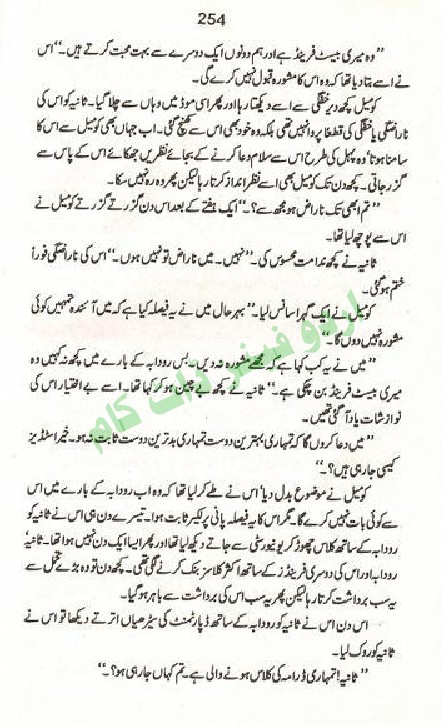 254
”وہ میری بیسٹ فرینڈ ہے اور ہم دونوں ایک دوسرے سے بہت محبت کرتے ہیں۔“ اس
نے اسے بتا دیا تھا کہ وہ اس کا مشورہ قبول نہیں کرے گی۔
کومیل کچھ دیر خفگی سے اسے دیکھتا رہا اور پھر اسی موڈ میں وہاں سے چلا گیا۔ ثانیہ کو اس کی
ناراضگی یا خفگی کی قطعاً پروا نہیں تھی بلکہ وہ خود بھی اس سے کھنچ گئی۔ اب جہاں بھی کومیل سے اس کا
سامنا ہوتا‘ وہ پہل کی طرح اس سے سلام دعا کرنے کے بجائے نظریں جھکائے اس کے پاس سے
گزر جاتی۔ کچھ دن تک کومیل بھی اسے نظر انداز کرتا رہا لیکن پھر وہ رہ نہیں سکا۔
”تم ابھی تک ناراض ہو مجھ سے؟۔“ ایک ہفتے کے بعد اس دن گزرتے گزرتے کومیل نے
اس سے پوچھ لیا تھا۔
ثانیہ نے کچھ ندامت محسوس کی۔ ”نہیں۔ میں ناراض تو نہیں ہوں۔“ اس کی ناراضگی فوراً
ختم ہو گئی۔
کومیل نے ایک گہرا سانس لیا۔ ”بہر حال میں نے یہ فیصلہ کیا ہے کہ میں آئندہ تمہیں کوئی
مشورہ نہیں دوں گا۔“
”میں نے یہ کب کہا ہے کہ مجھے مشورہ نہ دیں‘ بس رودابہ کے بارے میں کچھ نہ کہیں وہ
میری بیسٹ فرینڈ بن چکی ہے۔“ ثانیہ نے کچھ بے چین ہو کر کہا تھا۔ اسے بے اختیار اس کی
نوازشات یاد آ گئی تھیں۔
”میں دعا کروں گا کہ تمہاری بہترین دوست تمہاری بدترین دوست ثابت نہ ہو۔ خیر اسٹڈیز
کیسی جا رہی ہیں؟۔“
کومیل نے موضوع بدل دیا‘ اس نے طے کر لیا تھا کہ وہ اب رودابہ کے بارے میں اس
سے کوئی بات نہیں کرے گا۔ مگر اس کا یہ فیصلہ پانی پر لکیر ثابت ہوا۔ تیسرے دن ہی اس نے ثانیہ کو
رودابہ کے ساتھ کلاس چھوڑ کر یونیورسٹی سے جاتے دیکھ لیا تھا اور پھر ایسا ایک دن نہیں ہوا تھا۔ ثانیہ‘
رودابہ اور اس کی دوسری فرینڈز کے ساتھ اکثر کلاسز بنک کرنے لگی تھی۔ کچھ دن تو وہ بڑے تحمل سے
یہ سب برداشت کرتا رہا لیکن پھر یہ سب اس کی برداشت سے باہر ہو گیا۔
اس دن اس نے ثانیہ کو رودابہ کے ساتھ ڈپارٹمنٹ کی سیڑھیاں اترتے دیکھا تو اس نے
ثانیہ کو روک لیا۔
”ثانیہ! تمہاری ڈرامہ کی کلاس ہونے والی ہے۔ تم کہاں جا رہی ہو؟۔“
اردو فینز ڈاٹ کام